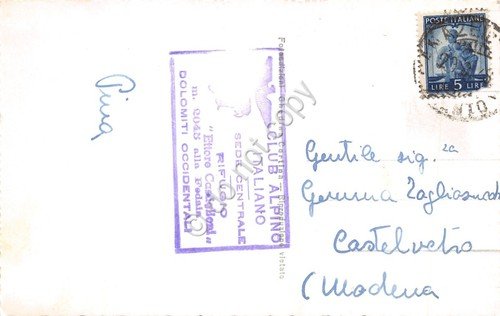 Pina
CLUB ALPINO
ITALIANO
SEDE CENTRALE
RIFUGIO
"Ettore Castiglioni"
m. 2045 alla Fedaia
DOLOMITI OCCIDENTALI
POSTE ITALIANE
LIRE 5 LIRE
Gentile sig.ra
Gemma
Castelvetro
(Modena